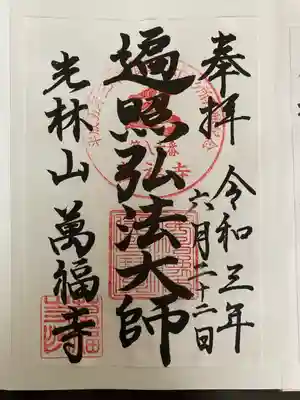 奉拝
令和三年
六月二十二日
遍照弘法大師
光林山
萬福寺